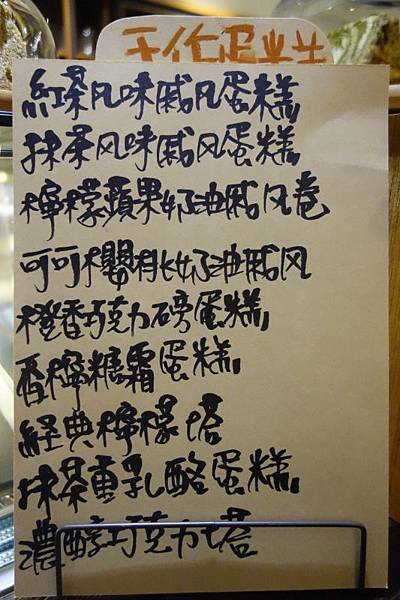 手作蛋糕
紅茶风味戚风蛋糕
抹茶风味戚风蛋糕
檸檬蘋果奶油戚风卷
可可櫻桃奶油戚风
橙香巧克力磅蛋糕
香檸糖霜蛋糕
経典檸檬塔
抹茶重乳酪蛋糕
濃醇巧克力塔